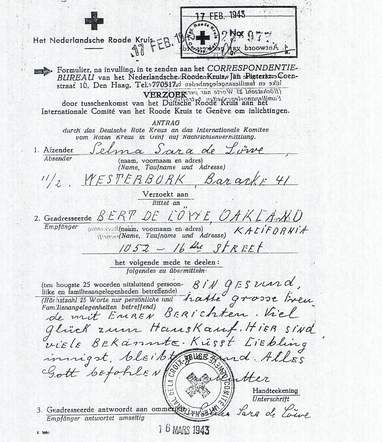 17 FEB. 1943
Het Nederlandsche Roode Kruis
17 FEB. 1943
Formulier, na invulling, in te zenden aan het CORRESPONDENTIE-
BUREAU van het Nederlandsche Roode Kruis, Jan Pietersz. Coen-
straat 10, Den Haag, Tel. 770517
VERZOEK
door tusschenkomst van het Duitsche Roode Kruis aan het
Internationale Comité van het Roode Kruis te Genève om inlichtingen.
ANTRAG
durch das Deutsche Rote Kreuz an das Internationale Komitee
vom Roten Kreuz in Genf auf Nachrichtenvermittlung.
1. Afzender Selma Sara de Löwe
Absender (naam, voornaam en adres)
(Name, Taufname und Adresse)
WESTERBORK, Baracke 41
Verzoekt aan
Bittet an
2. Geadresseerde BERT DE LÖWE, OAKLAND
Empfänger (naam, voornaam en adres) KALIFORNIA
(Name, Taufname und Adresse)
1052 - 16the STREET
het volgende mede te deelen:
folgendes zu übermitteln:
(ten hoogste 25 woorden uitsluitend persoon-
lijke en familieaangelegenheden betreffende) BIN GESUND,
(Höchstzahl 25 Worte nur persönliche und
Familienangelegenheiten betreffend) hatte grosse Freu
de mit EUREN BERICHTEN. Viel
glück zum Hauskauf. HIER SIND
VIELE BEKANNTE. KÜSST LIEBLING
innigst, bleibt und. Alles
Gott befohlen
Handteekening
Unterschrift
Sara de Löwe
3. Geadresseerde antwoordt aan ommezijde
Empfänger antwortet umseitig
16 MARS 1943